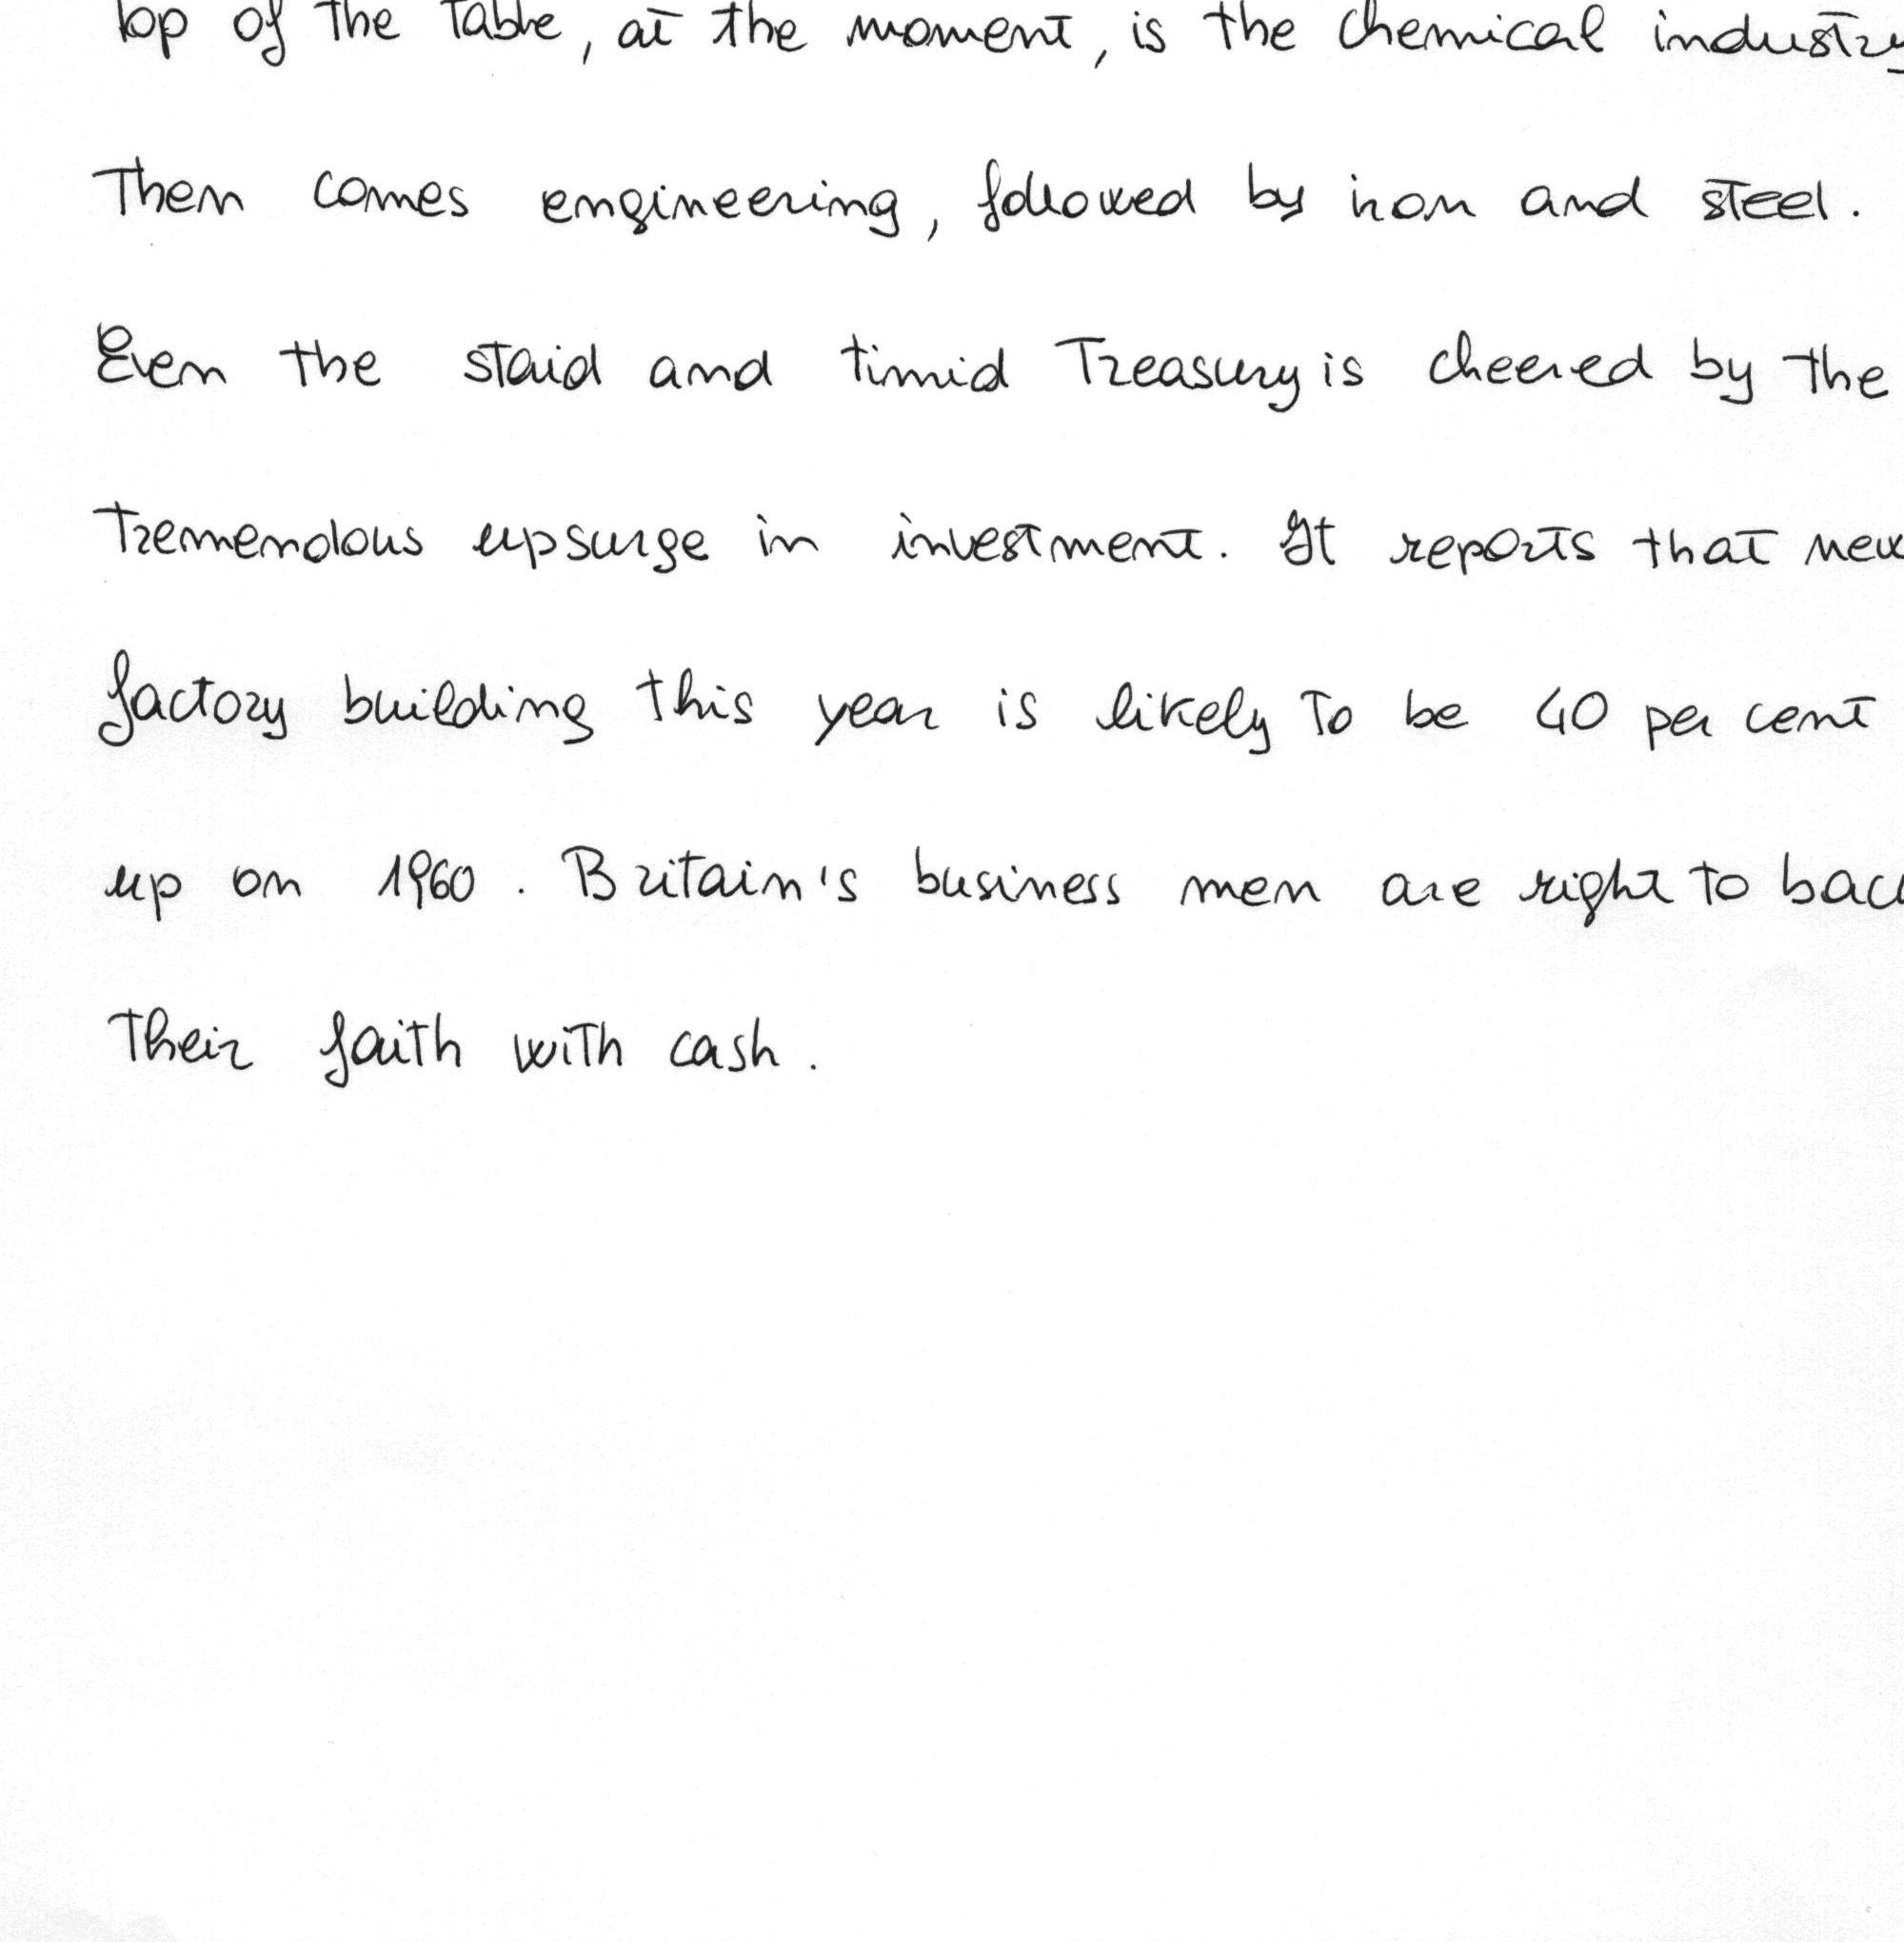 top of the table, at the moment, is the chemical industry
Then comes engineering, followed by iron and steel.
Even the staid and timid Treasury is cheered by the
tremendous upsurge in investment. It reports that new
factory building this year is likely to be 40 per cent
up on 1960. Britain's business men are right to back
their faith with cash.